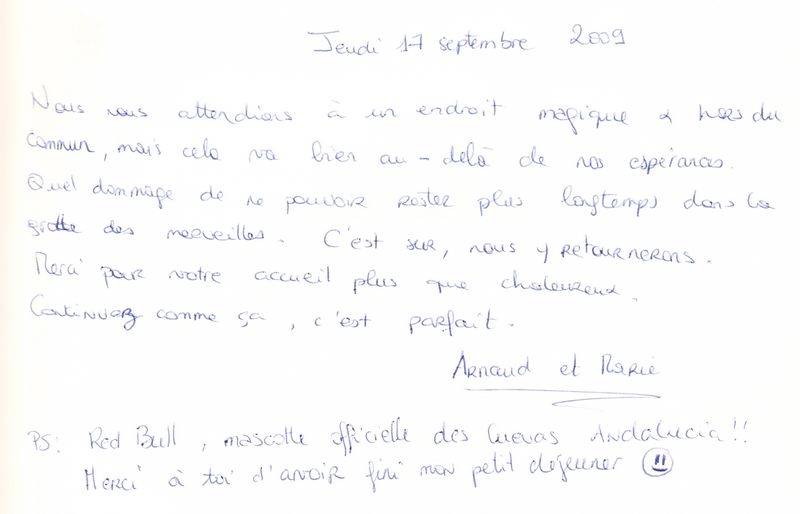 Jeudi 17 septembre 2009
Nous nous attendions à un endroit magique & hors du
commun, mais cela va bien au-delà de nos espérances.
Quel dommage de ne pouvoir rester plus longtemps dans la
grotte des merveilles. C'est sur, nous y retournerons.
Merci pour votre accueil plus que chaleureux.
Continuez comme ça, c'est parfait.
Arnaud et Marie
PS: Red Bull, mascotte officielle des Cuevas Andalucia!!
Merci à toi d'avoir fini mon petit dejeuner